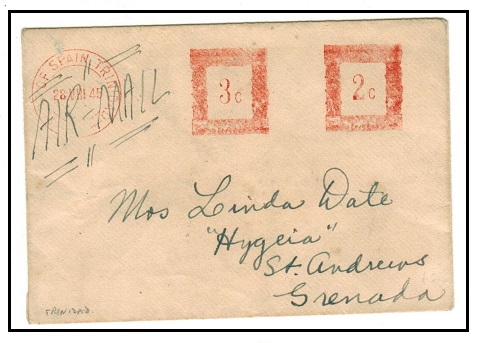 OF SPAIN, TRI
28 VIII 45
AIR MAIL
3c
2c
Mrs Linda Date
"Hygeia"
St. Andrews
Grenada
TRINIDAD.